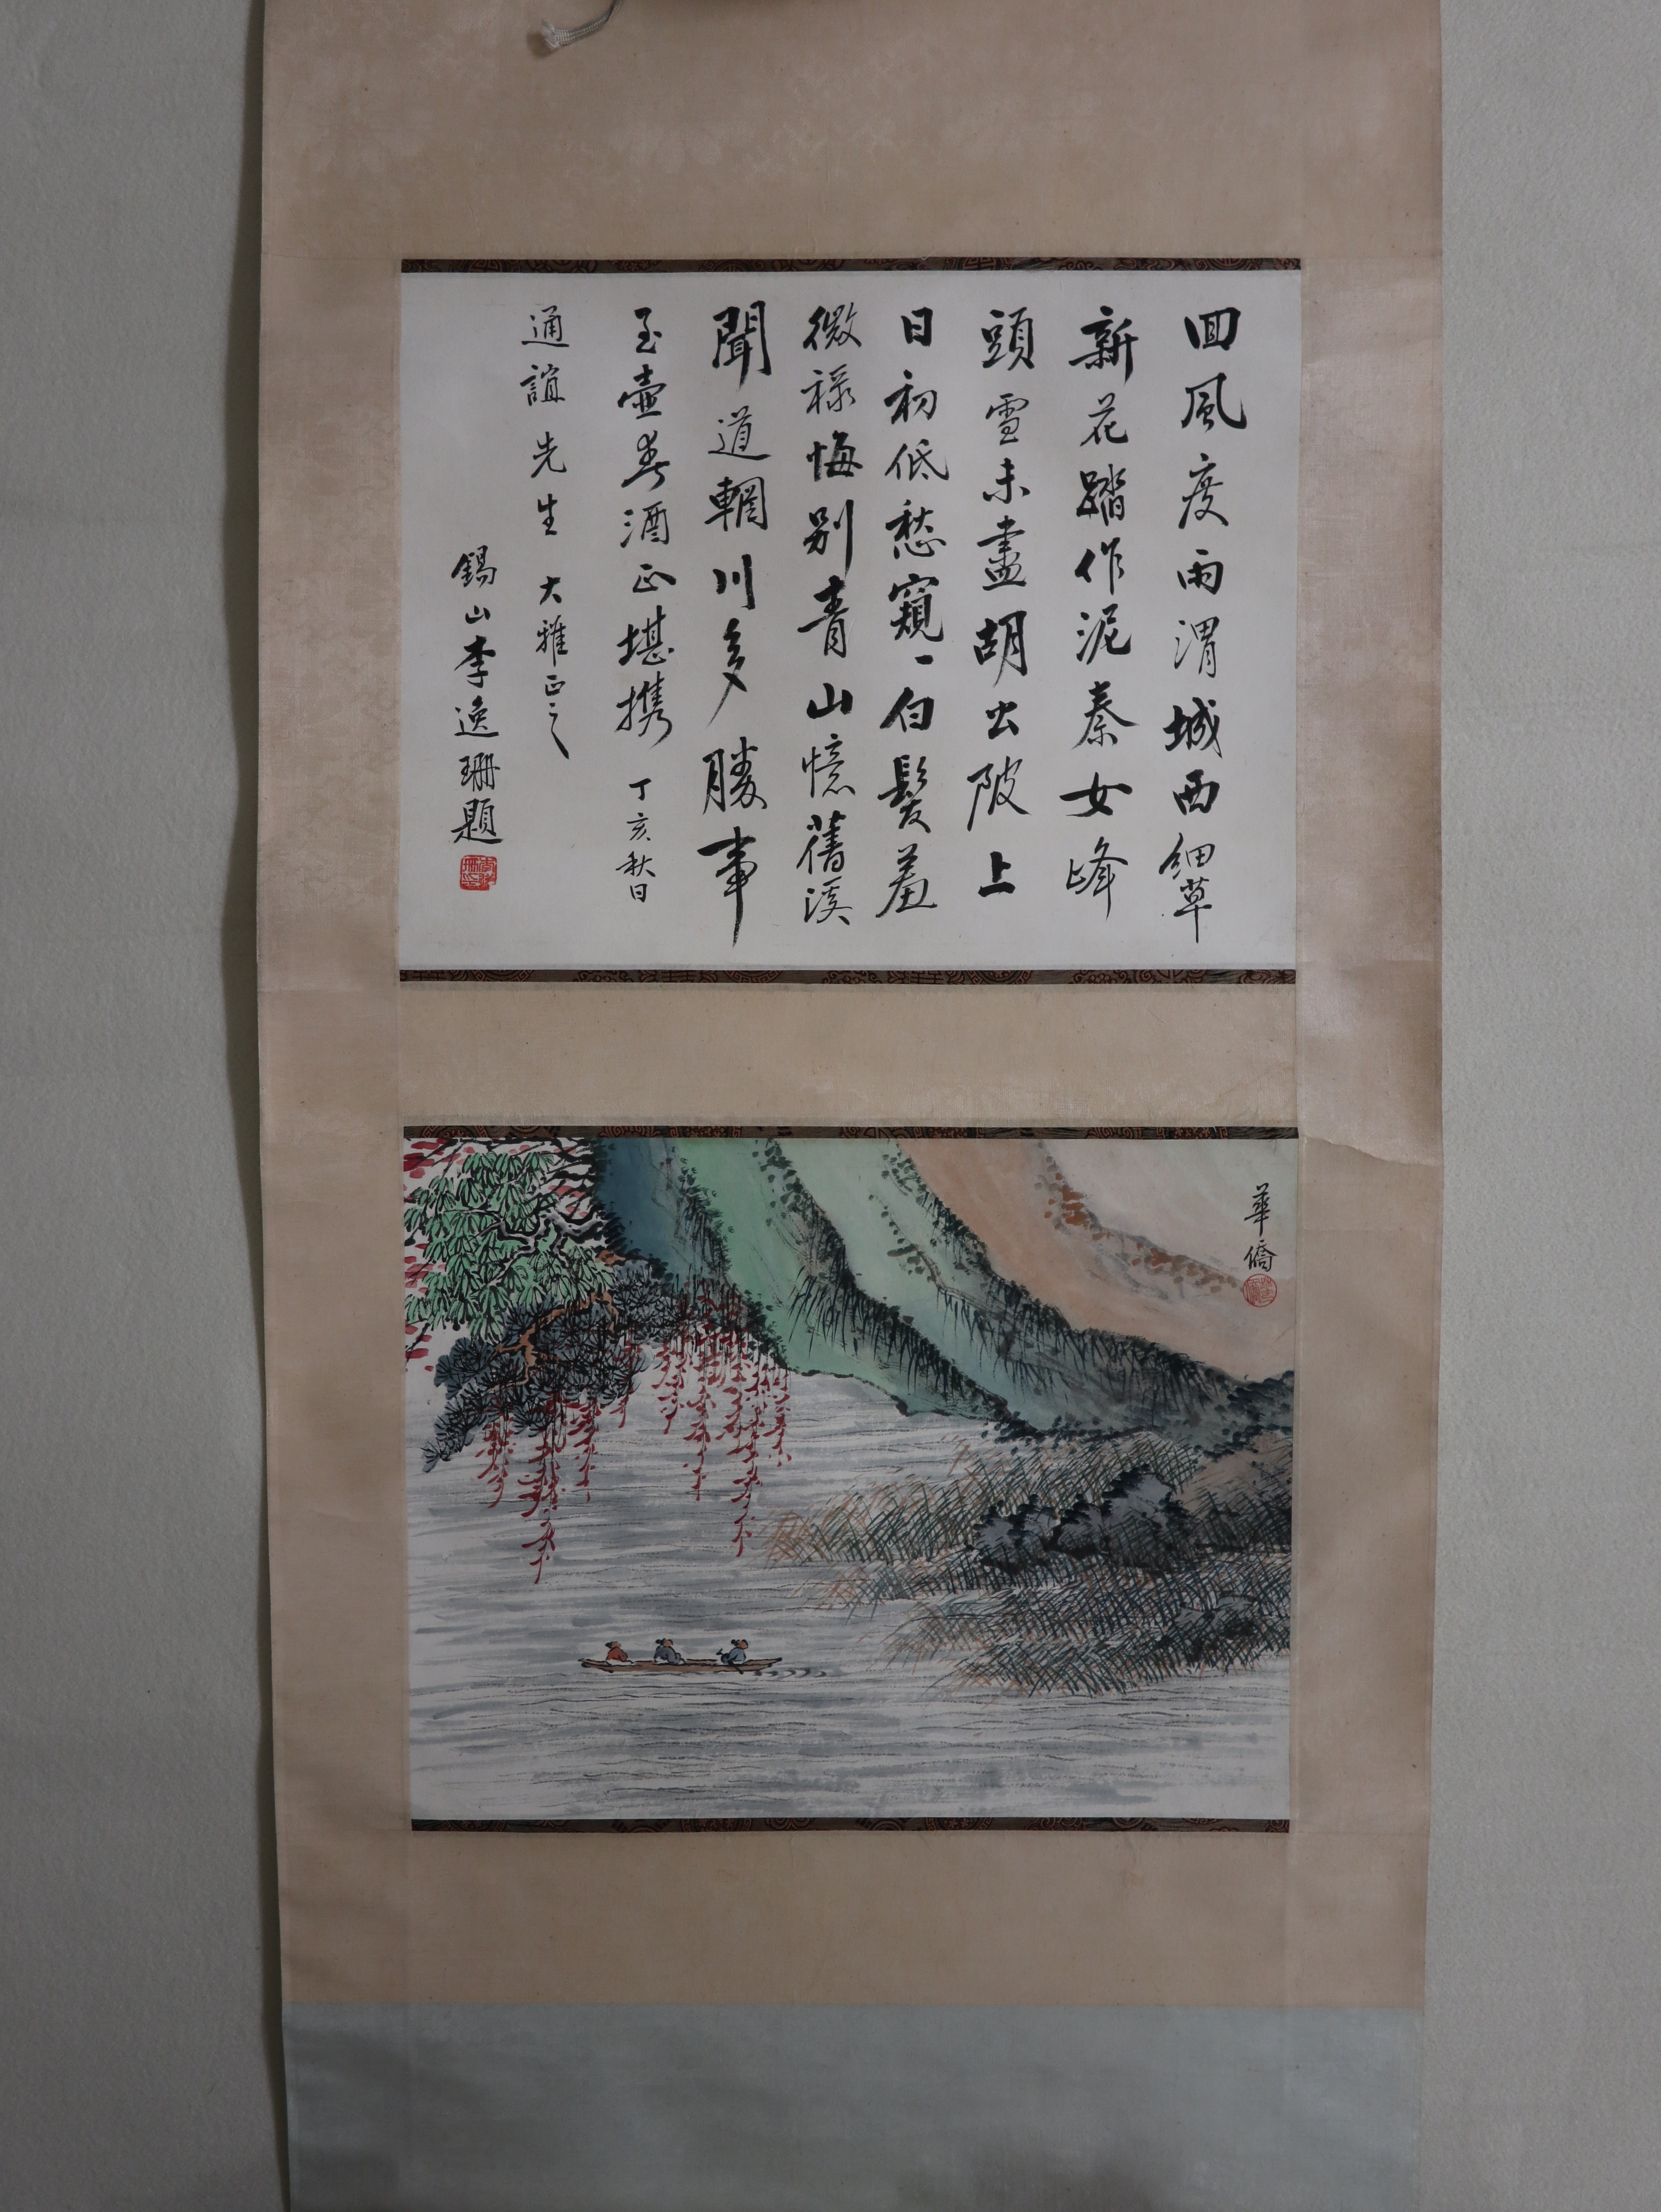 囬風度雨渭城西細草
新花踏作泥秦女峰
頭雪未盡胡公陂上
日初低愁窺白髮羞
微祿悔别青山憶舊溪
聞道輞川多勝事
玉壺春酒正堪携 丁亥秋日
通誼先生 大雅正之
錫山李逸珊題
華僑